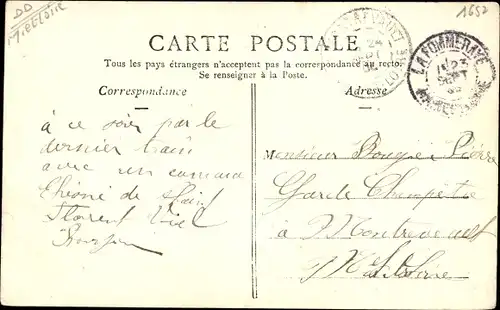 DD
M.et Loire
1652
CARTE POSTALE
Tous les pays étrangers n'acceptent pas la correspondance au recto.
Se renseigner à la Poste.
Correspondance
Adresse
LA POMMERAYE
23
SEPT
24
à ce soir par le
dernier train
avec un camara
de
Florent
Monsieur Bougié Pierre
Garde Champêtre
à Montrevault
M et Loire